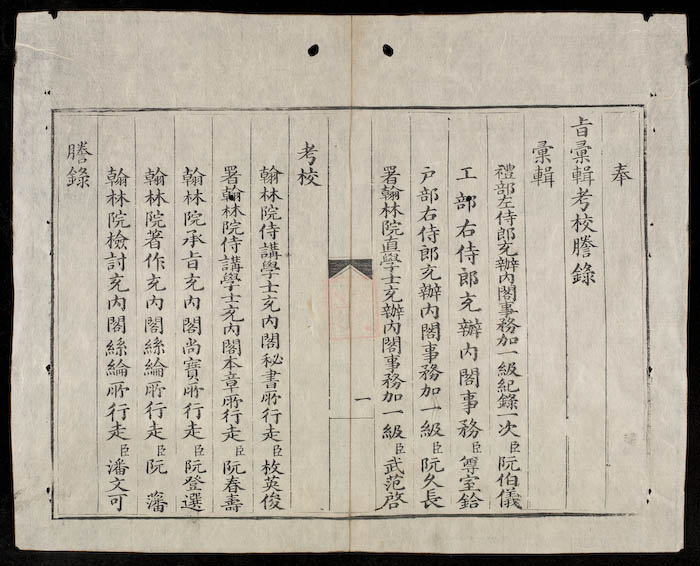 奉
旨彙輯考校謄錄
彙輯
禮部左侍郎充辦內閣事務加一級紀錄一次臣阮伯儀
工部右侍郎充辦內閣事務臣尊室鉿
戶部右侍郎充辦內閣事務加一級臣阮久長
署翰林院直學士充辦內閣事務加一級臣武范啓
一
考校
翰林院侍講學士充內閣秘書所行走臣枚英俊
署翰林院侍講學士充內閣本章所行走臣阮春壽
翰林院承旨充內閣尚寶所行走臣阮登選
翰林院著作充內閣絲綸所行走臣阮藩
翰林院檢討充內閣絲綸所行走臣潘文可
謄錄